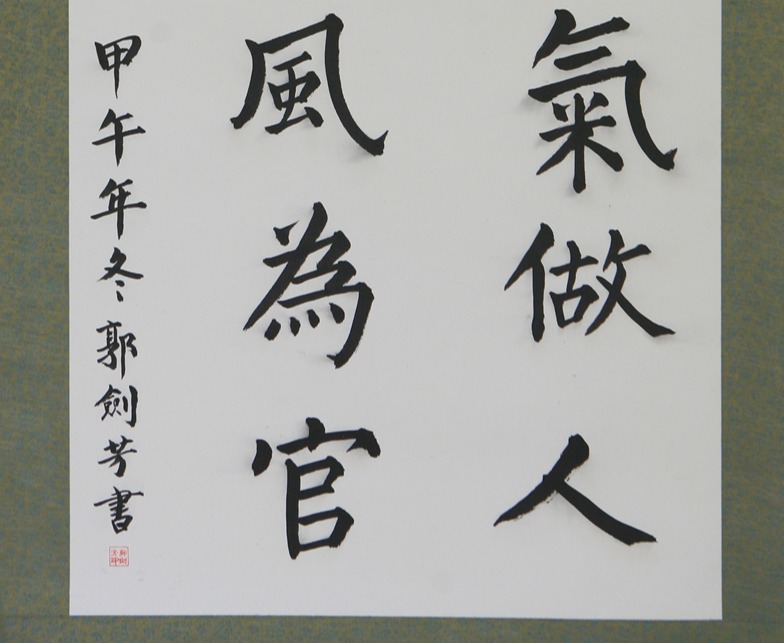 氣做人
風為官
甲午年冬郭劍芳書